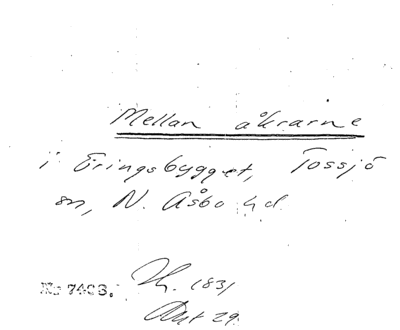 Mellan åkrarne
i Eringsbygget, Tossjö
sn, N. Åsbo hd.
No 7403.
H. 1831
Akt 29.